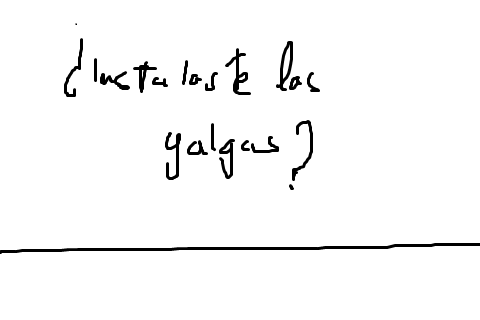 ¿Instalaste las
yalgas?